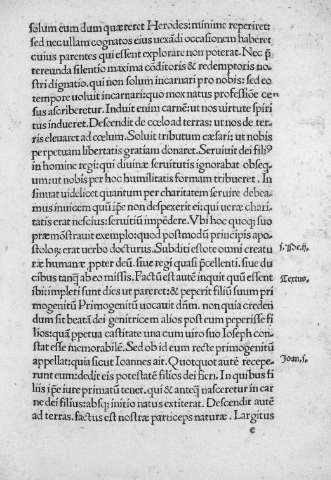 solum eum dum quæreret Herodes: minime reperiret:
sed nec ullam cognatos eius uexādi occasionem haberet
cuius parentes qui essent explorare non poterat. Nec p̄
tereunda silentio maxima cōditoris & redemptoris no-
stri dignatio. qui non solum incarnari pro nobis: sed eo
tempore uoluit incarnari: quo mox natus professiōe cen
sus ascriberetur. Induit enim carnē: ut nos uirtute spiri
tus indueret. Descendit de cœlo ad terras: ut nos de ter-
ris eleuaret ad cœlum. Soluit tributum cæsari: ut nobis
perpetuam libertatis gratiam donaret. Seruiuit dei filiꝰ
in homine regi: qui diuinæ seruitutis ignorabat obseq̄
um: ut nobis per hoc humilitatis formam tribueret. In
sinuat uidelicet quantum per charitatem seruire debea-
mus inuicem quū ip̄e non despexerit ei: qui ueræ chari-
tatis erat nescius: seruitiū impēdere. Vbi hoc quoq; suo
præmōstrauit exemplo: quod postmodū principis apo-
stoloꝝ erat uerbo docturus. Subditi estote omni creatu
ræ humanæ ꝓpter deū. siue regi quasi p̄cellenti. siue du
cibus tanq̄ ab eo missis. Factū est autē inquit quū essent
ibi: impleti sunt dies ut pareret: & peperit filiū suum pri
mogenitū Primogenitū uocauit dn̄m. non quia credēn
dum sit beatā dei genitricem alios post eum peperisse fi
lios: quā ꝑpetua castitate una cum uiro suo Ioseph con-
stat esse memorabilē. Sed ob id eum recte primogenitū
appellat: quia sicut Ioannes ait. Quotquot autē recepe-
runt eum: dedit eis potestatē filios dei fieri. In quibus fi
liis ip̄e iure primatū tenet. qui & anteq̄ nasceretur in car
ne dei filius: absq; initio natus extiterat. Descendit autē
ad terras. factus est nostræ particeps naturæ. Largitus
e
j. Pet. ij.
Tertius.
Joan. j.